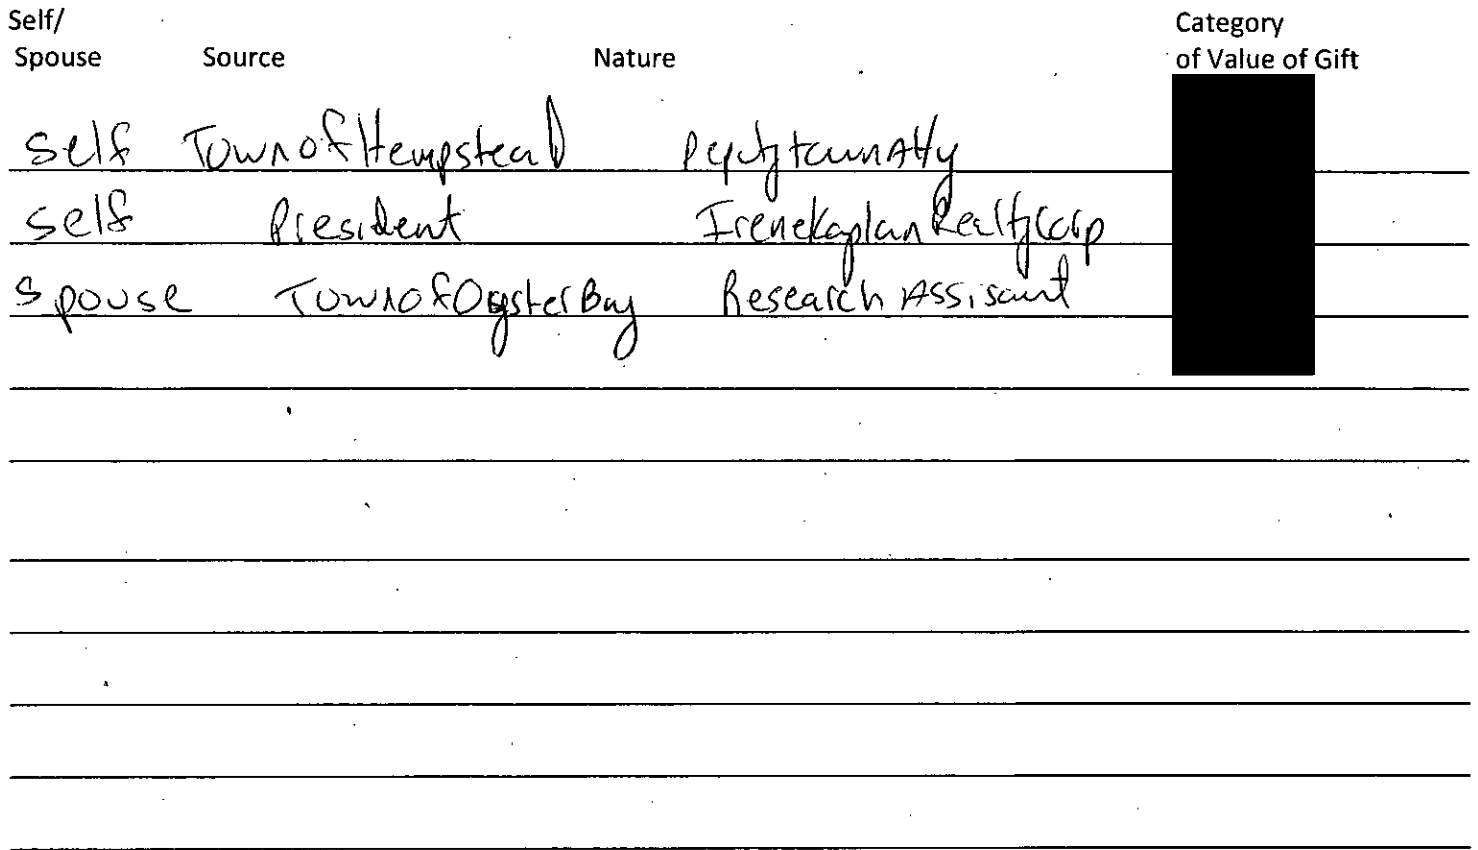 Self/ Category
Spouse Source Nature of Value of Gift
self Town of Hempstead Deputy town Atty
self President Irene Kaplan Realty Corp
Spouse Town of Oyster Bay Research Assisant